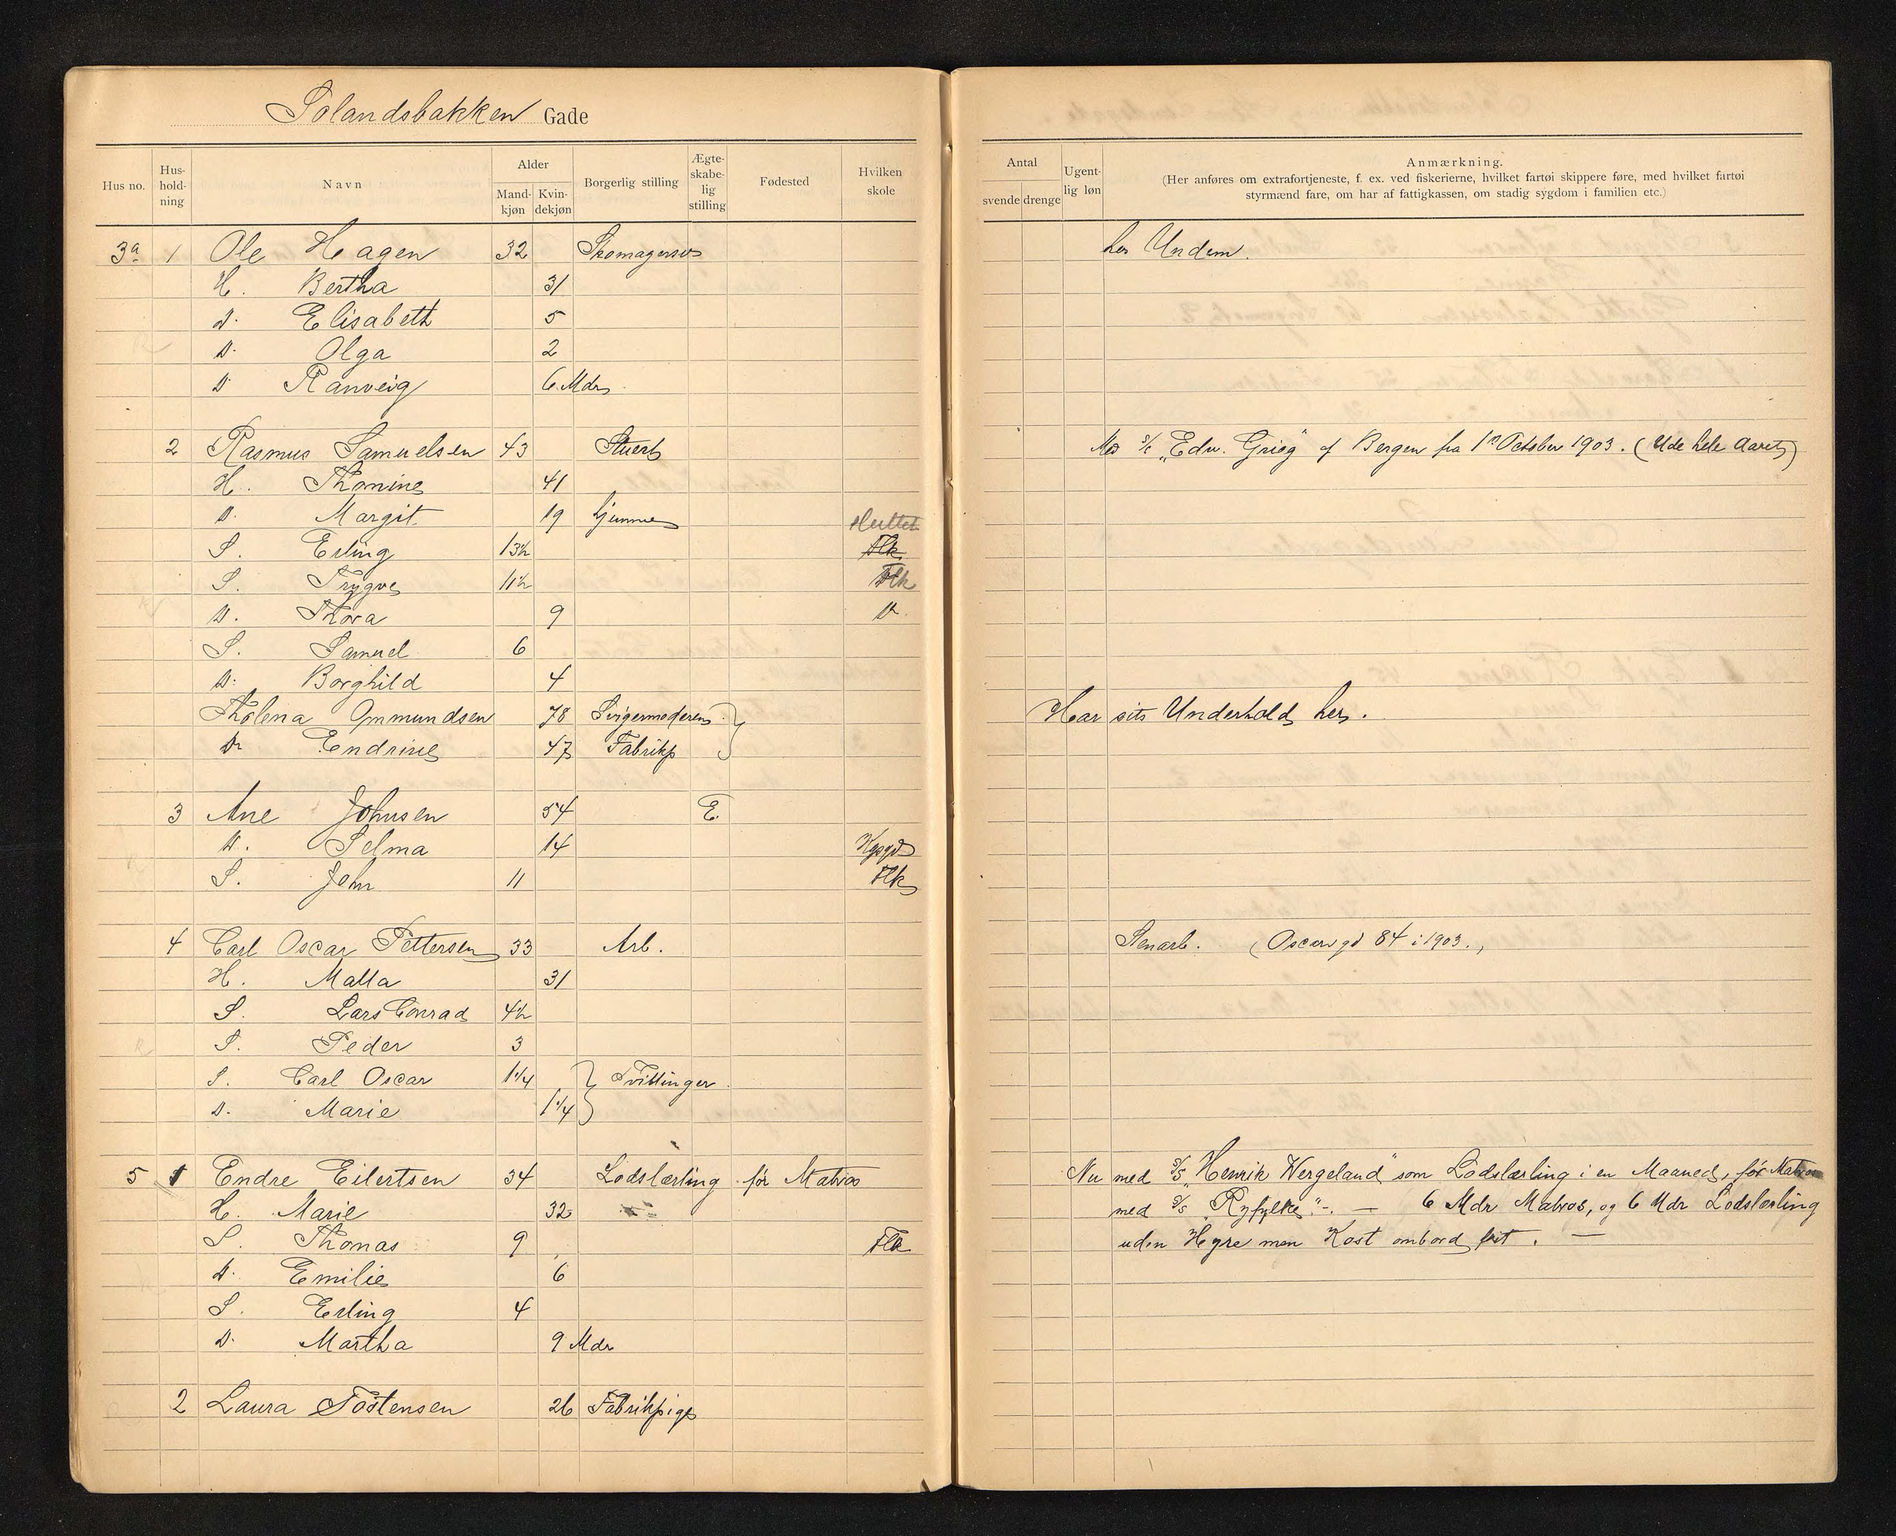 Solandsbakken Gade
Hus no. Hus-hold-ning Navn Alder Mand-kjøn Kvin-dekjøn Borgerlig stilling Ægte-skabe-lig stilling Fødested Hvilken skole
Antal svende drenge Ugent-lig løn Anmærkning.
(Her anføres om extrafortjeneste, f. ex. ved fiskerierne, hvilket fartøi skippere føre, med hvilket fartøi
styrmænd fare, om har af fattigkassen, om stadig sygdom i familien etc.)
3a 1 Ole Hagen 32 Skomagersv hos
H. Bertha 31
D. Elisabeth 5
D. Olga 2
D. Ranveig 6 Mdr
2 Rasmus Samuelsen 43 Stuert Med S/S "Edv. Grieg" af Bergen fra 1ste October 1903. (Ude hele Aaret)
H. Thomine 41
D. Margit 19 hjemme
sluttet
S. Erling 13½ Flk
S. Trygve 11½ Flk
D. Thora 9 D.
S. Samuel 6
D. Borghild 4
Tholena Ommundsen 78 Svigermoderen Har sit Underhold her.
Dr Endrine 47 Fabrikp
3 Ane Johnsen 54 E.
D. Selma 14 Kpsgd
S. John 11 Flk
4 Carl Oscar Pettersen 33 Arb. Stenarb. (Oscarsgd 84 i 1903.)
H. Malla 31
S. Lars Conrad 4½
S. Peder 3
S. Carl Oscar 1¼ Tvillinger
D. Marie 1¼
5 1 Endre Eilertsen 34 Lodslærling før Matros Nu med S/S "Henrik Wergeland" som Lodslærling i en Maaned, før Matros
H. Marie 32 med S/S "Ryfylke". — 6 Mdr Matros, og 6 Mdr Lodslærling
S. Thomas 9 Flk uden Hyre men Kost ombord frit. —
D. Emilie 6
S. Erling 4
D. Martha 9 Mdr
2 Laura Tostensen 26 Fabrikpige